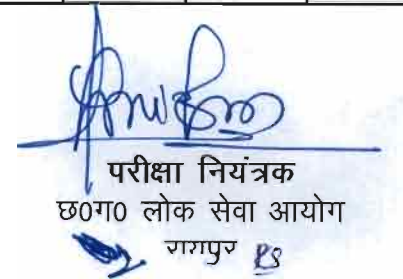 परीक्षा नियंत्रक
छ0ग0 लोक सेवा आयोग
रायपुर